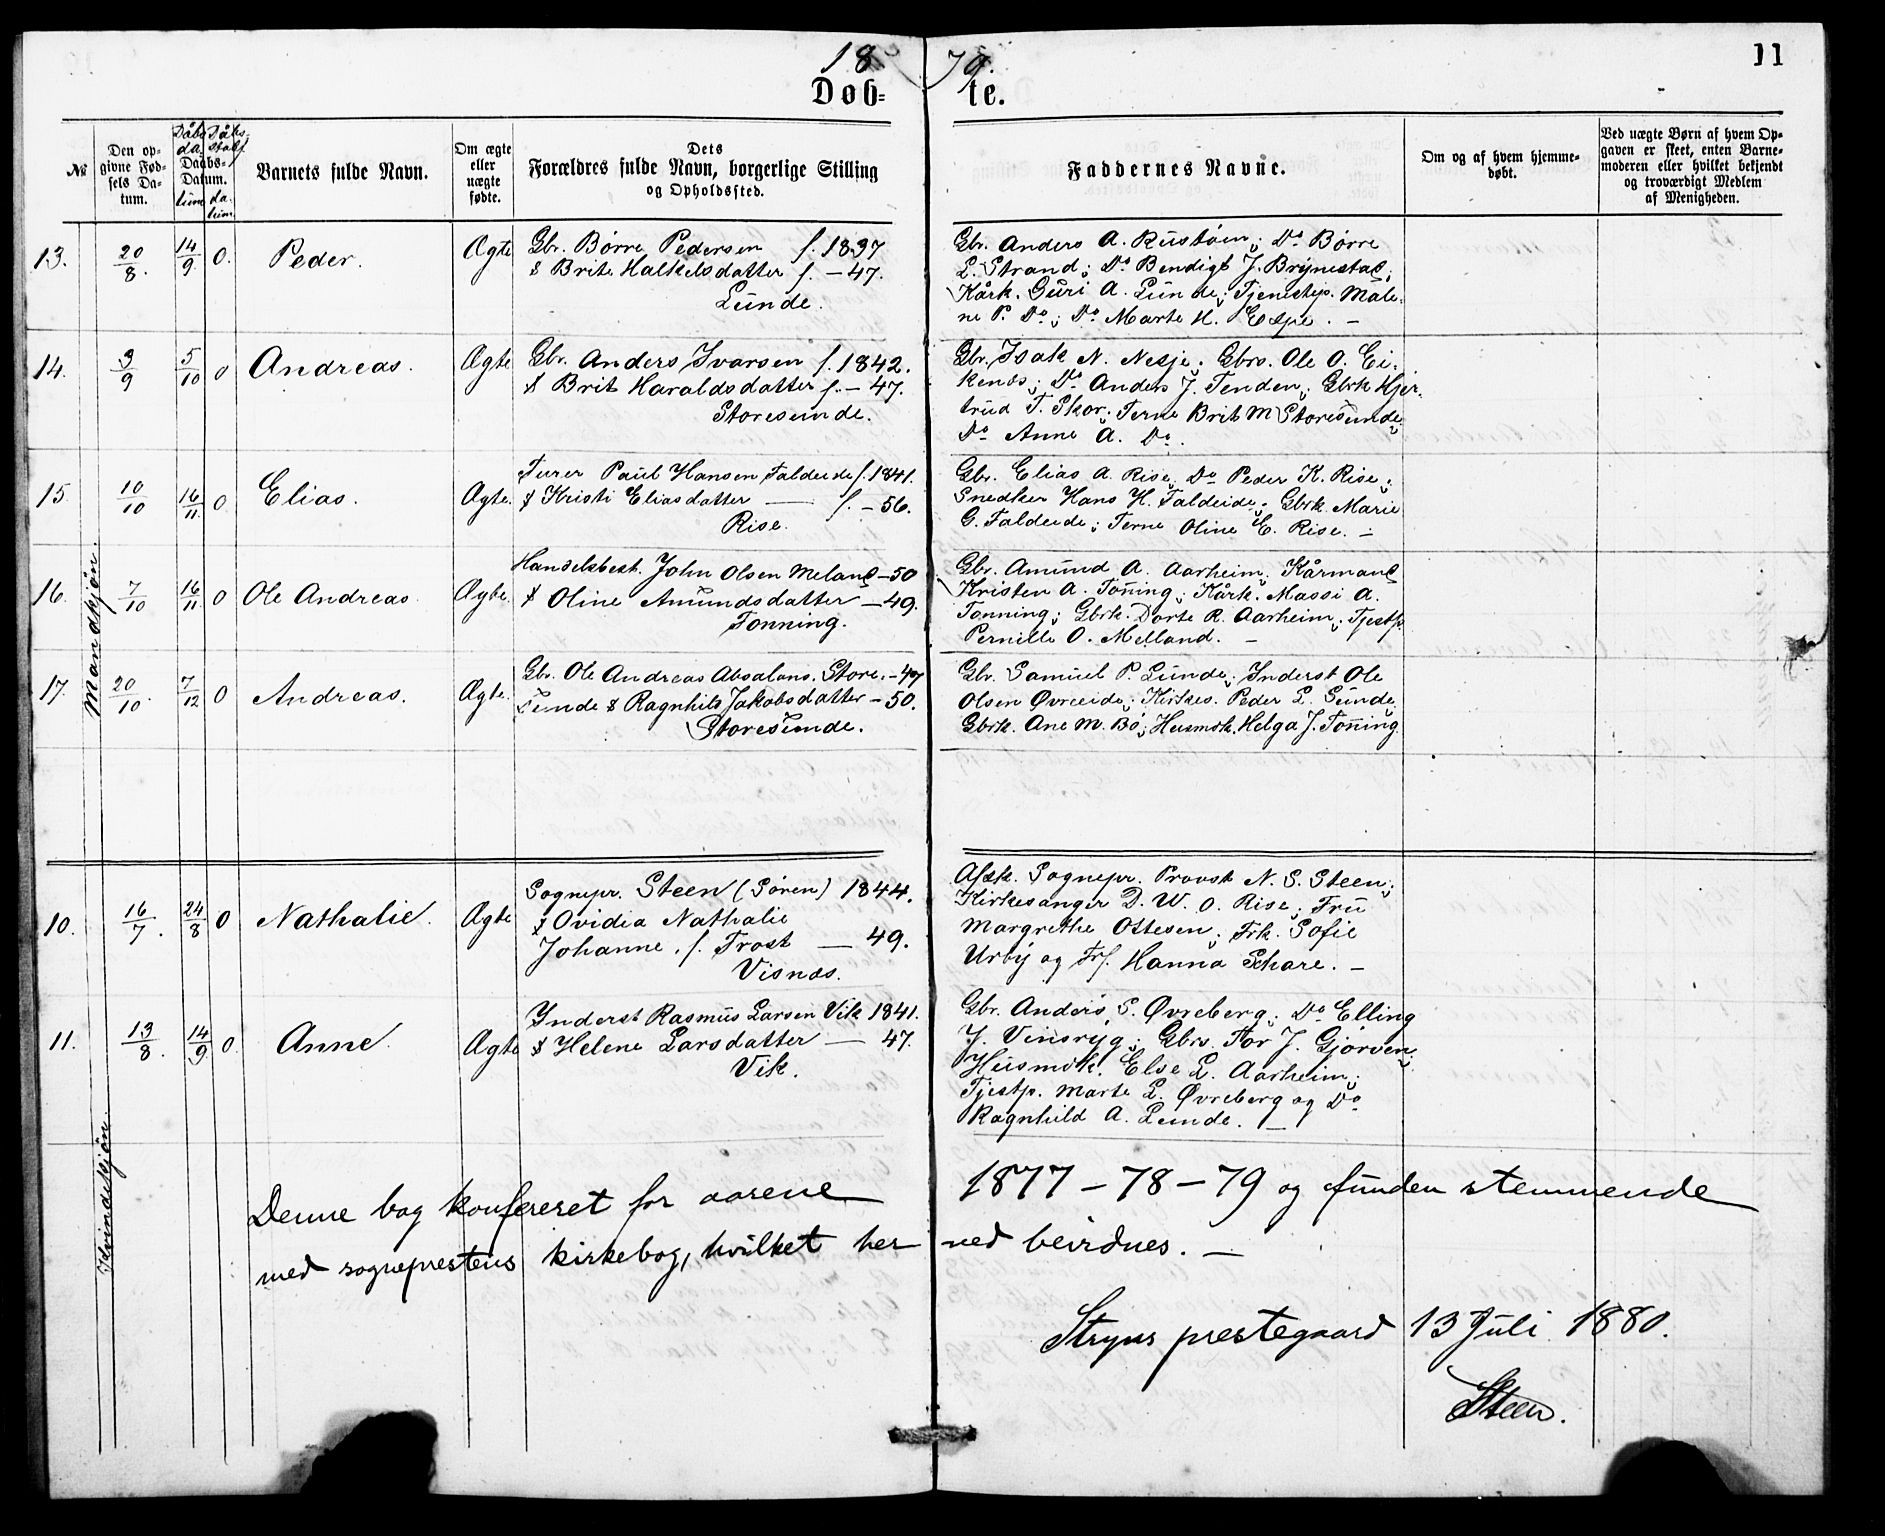 18 79.
11
Døb= te.
№
Den op-
givne Fød-
sels Da-
tum.
Dåbs
da-
Daabs-
Datum.
tum
Dåbs-
sted
da-
tum.
Barnets fulde Navn.
Om ægte
eller
uægte
fødte.
Dets
Forældres fulde Navn, borgerlige Stilling
og Opholdssted.
Faddernes Navne.
Om og af hvem hjemme-
døbt.
Ved uægte Børn af hvem Op-
gaven er skeet, enten Barne-
moderen eller hvilket bekjendt
og troværdigt Medlem
af Menigheden.
Mandkjøn.
13. 20/8. 14/9 0. Peder. Ægte
Gbr. Børre Pedersen f. 1837
& Brite Halkelsdatter f. – 47.
Lunde.
Gbr. Anders A. Rustøen; Do Børre
L. Strand; Do Bendigt J. Brynestad;
Kårk. Guri A. Lunde; Tjenestep. Male-
ne P. Do; Do Marte H. Espe. –
14. 3/9 5/10 0 Andreas. Ægte
Gbr. Anders Ivarsen f. 1842.
& Brit Haraldsdatter f. – 47.
Storesunde.
Gbr. Isak N. Nesje; Gbrs. Ole O. Ei-
kenes; Do Anders J. Tenden; Gbrk Hjer-
trud T. Skor; Terne Brit M Storesunde;
Do Anne A. Do.
15. 10/10 16/11 0 Elias. Ægte.
Furer Paul Hansen Faldeide f. 1841.
& Kristi Eliasdatter — f. – 56.
Rise.
Gbr. Elias A. Rise; Do Peder K. Rise;
Snedker Hans H. Faldeide; Gbrk. Marie
G. Faldeide; Terne Oline E. Rise. –
16. 7/10 16/11 0 Ole Andreas Ægte.
Handelsbest. John Olsen Meland – 50
& Oline Amundsdatter – 49.
Tonning.
Gbr. Amund A. Aarheim; Kårmand
Kristen A. Toning; Kårk. Massi A.
Tonning; Gbrk. Dorte R. Aarheim; Tjestp.
Pernille O. Melland. –
17. 20/10. 7/12 0 Andreas. Ægte.
Gbr. Ole Andreas Absalons. Store- – 47
sunde & Ragnhild Jakobsdatter – 50.
Storesunde.
Gbr. Samuel P. Lunde; Inderst Ole
Olsen Øvreeide; Kirkes. Peder L. Sunde;
Gbrk. Ane M. Bø; Husmdk. Helga J. Toning.
Kvindekjøn.
10. 16/7. 24/8 0 Nathalie. Ægte
Sognepr. Steen (Søren) 1844.
& Ovidia Nathalie
Johanne, f. Trost — 49.
Visnæs.
Afsk. Sognepr. Provst N. S. Steen;
Kirkesanger D. W. O. Rise; Fru
Margrethe Ottesen; Frk. Sofie
Urby og Frk. Hanna Schare. –
11. 13/8. 14/9 0 Anne. Ægte
Inderst Rasmus Larsen Vik 1841.
& Helene Larsdatter — 47.
Vik.
Gbr. Anders S. Øvreberg; Do Elling
J. Vinsryg; Gbrs. Tor J. Gjørven;
Husmdk. Else L. Aarheim;
Tjestp. Marte L. Øvreberg og Do
Ragnhild A. Lunde. –
Denne bog konfereret for aarene 1877 – 78 – 79 og funden stemmende
med sogneprestens kirkebog, hvilket herved bevidnes. –
Stryns prestegaard 13 Juli 1880.
SSteen.